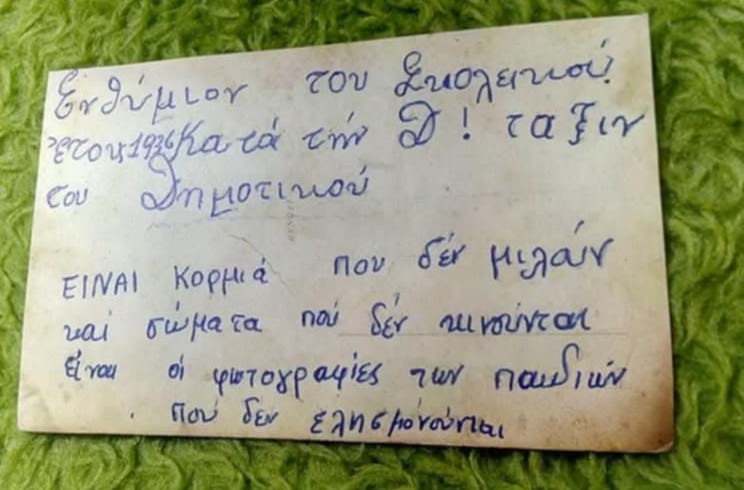 Ενθύμιον του Σκολεικού
έτους 1936 Κατά τήν Δ! ταξιν
του Δημοτικού
ΕΙΝΑΙ κορμιά που δέν μιλάν
καί σώματα πού δέν κινούνται
είναι οι φωτογραφίες των παιδιών
που δεν ελησμονούνται